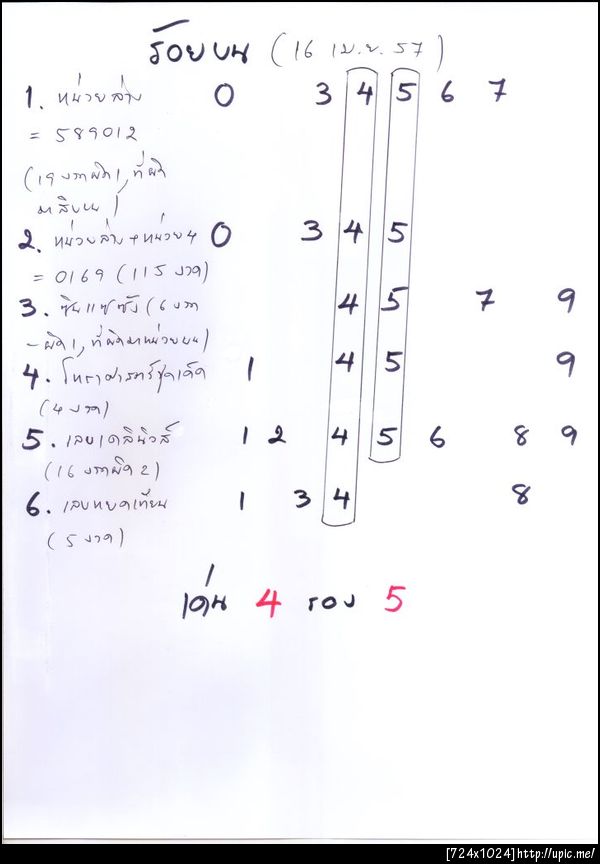 ร้อยบน (16 เม.ย. 57)
1. หน่วยล่าง 0 3 4 5 6 7
= 589012
(19 งวดผิด 1, ที่ผิด
มาสิบบน)
2. หน่วยล่าง + หน่วย 4 0 3 4 5
= 0169 (115 งวด)
3. ซินแซซัง (6 งวด 4 5 7 9
- ผิด 1, ที่ผิดมาหน่วยบน)
4. โหราศาสตร์ชุดเด็ด 1 4 5 9
(4 งวด)
5. เลขเดลินิวส์ 1 2 4 5 6 8 9
(16 งวดผิด 2)
6. เลขหยดเทียน 1 3 4 8
(5 งวด)
เด่น 4 รอง 5
[724x1024]http://upic.me/